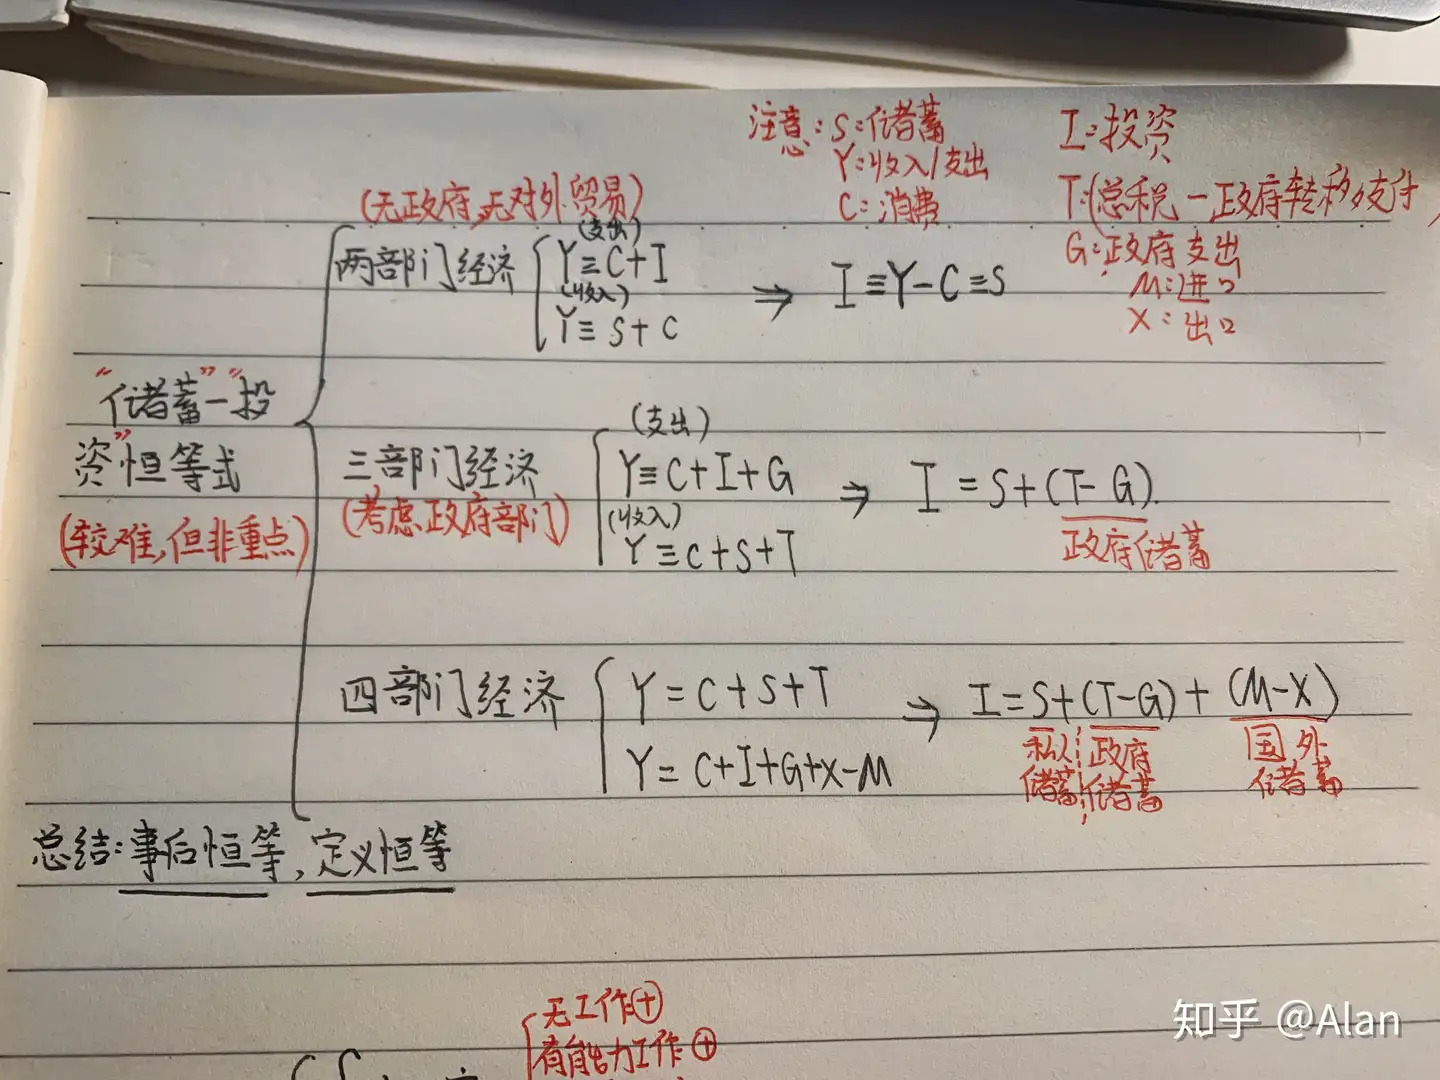 注意: S:储蓄
Y:收入/支出
C:消费
I:投资
T:(总税-政府转移支付)
G:政府支出
M:进口
X:出口
(无政府,无对外贸易)
两部门经济
(支出)
Y≡C+I
(收入)
Y≡S+C
⇒ I≡Y-C≡S
"储蓄"-"投
资"恒等式
(较难,但非重点)
三部门经济
(考虑政府部门)
(支出)
Y≡C+I+G
(收入)
Y≡C+S+T
⇒ I=S+(T-G).
政府储蓄
四部门经济
Y=C+S+T
Y=C+I+G+X-M
⇒ I=S+(T-G)+(M-X)
私人储蓄
政府储蓄
国外储蓄
总结:事后恒等,定义恒等
无工作⊕
有能力工作⊕
知乎 @Alan